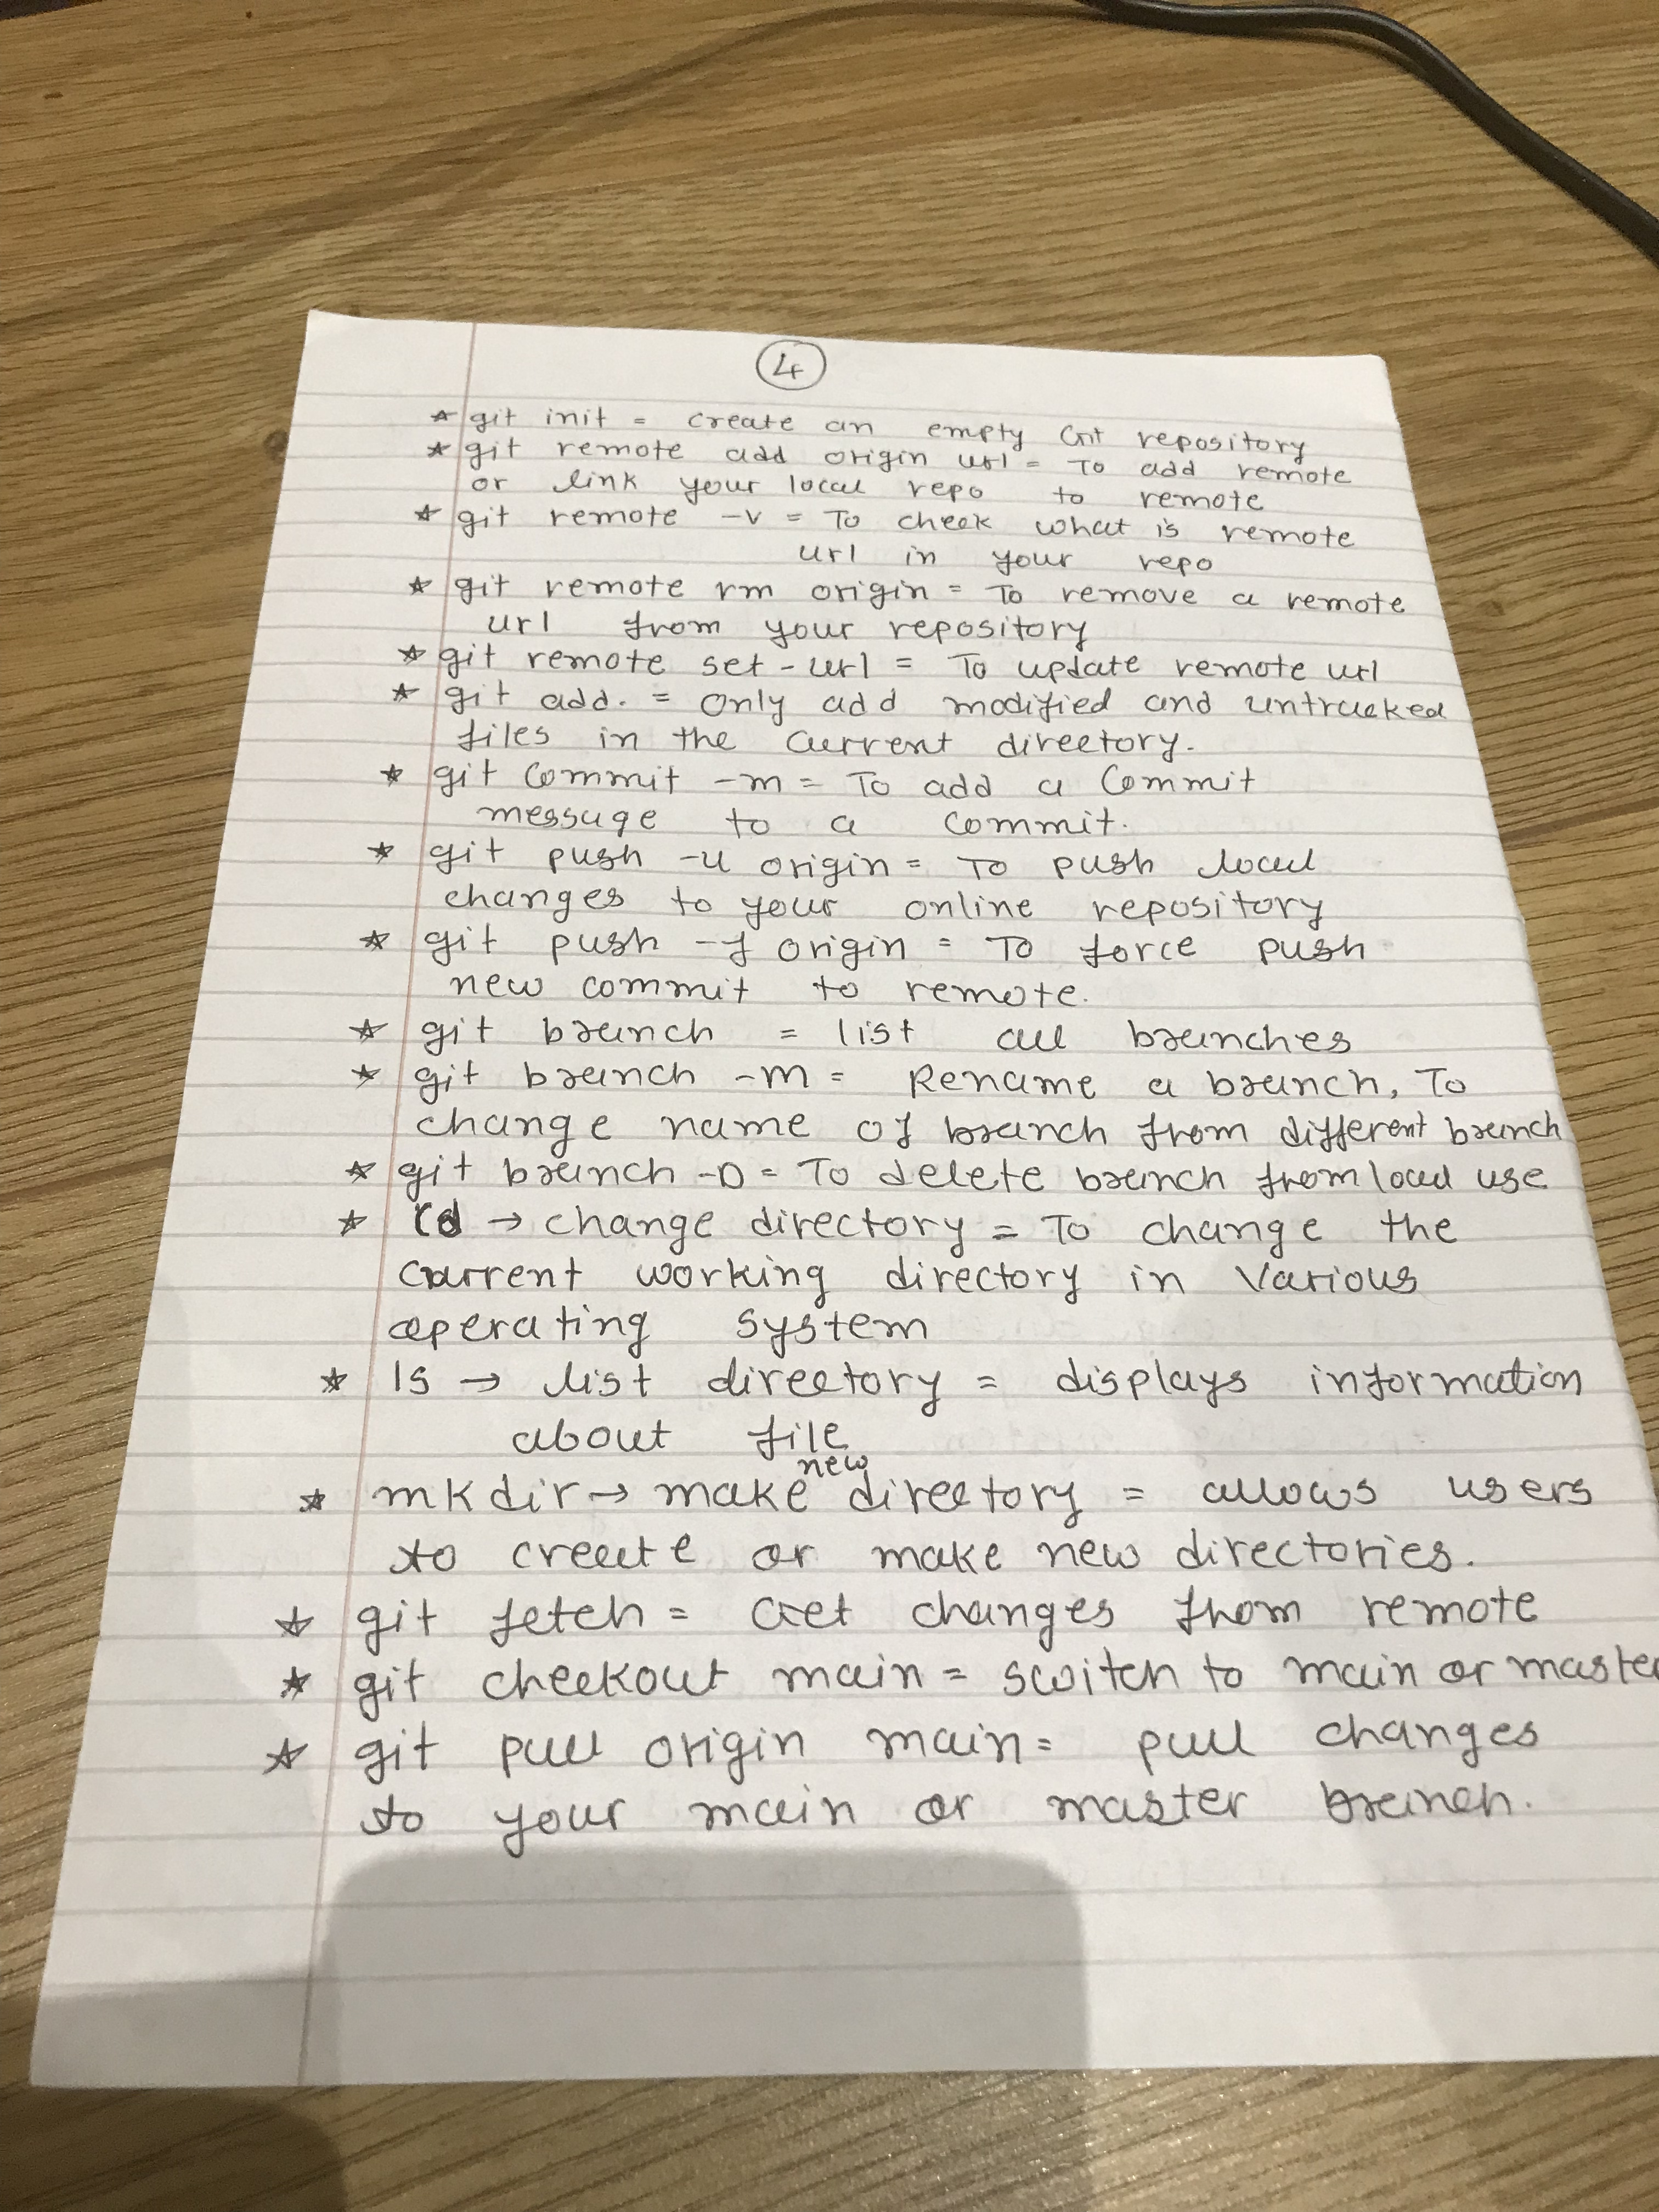 4
* git init = create an empty Git repository
* git remote add origin url = To add remote
or link your local repo to remote
* git remote -v = To check what is remote
url in your repo
* git remote rm origin = To remove a remote
url from your repository
* git remote set-url = To update remote url
* git add. = only add modified and untracked
files in the current directory.
* git commit -m = To add a commit
message to a commit.
* git push -u origin = To push local
changes to your online repository
* git push -f origin = To force push
new commit to remote.
* git branch = list all branches
* git branch -m = Rename a branch, To
change name of branch from different branch
* git branch -D = To delete branch from local use
* cd → change directory = To change the
current working directory in various
operating system
* ls → list directory = displays information
about file
new
* mkdir → make directory = allows users
to create or make new directories.
* git fetch = Get changes from remote
* git checkout main = switch to main or master
* git pull origin main = pull changes
to your main or master branch.